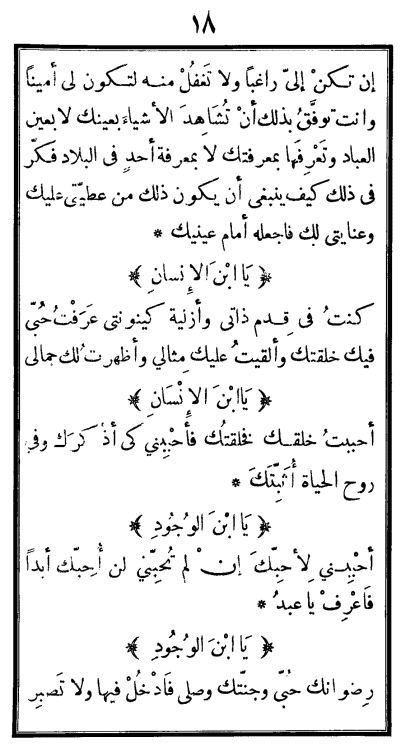 ١٨
إن تكنْ إليّ راغبًا ولا تَغفُلْ منه لتكون لى أمينًا
وانت توفَّقُ بذلك أنْ تُشَاهِدَ الأشياءَ بعينك لا بعين
العباد وتَعْرِفَها بمعرفتك لا بمعرفة أحدٍ فى البلاد فكّر
فى ذلك كيف ينبغى أن يكون ذلك من عطيّتى عليك
وعنايتى لك فاجعله أمام عينيك *
﴿ يَا ابْنَ الإِنسانِ ﴾
كنتُ فى قِدم ذاتى وأزلية كينونتى عَرَفْتُ حُبّى
فيك خلقتك وألقيتُ عليك مِثالي وأظهرتُ لك جمالى
﴿ يَا ابْنَ الإِنْسَانِ ﴾
أحببتُ خلقك فخلقتُك فأحْبِبْني كى أذكرَك وفي
روح الحياة أُثَبِّتَكَ *
﴿ يَا ابْنَ الوُجُودِ ﴾
أحْبِبْني لِأُحِبَّكَ إنْ لم تُحِبَّني لن أُحِبّك أبداً
فَاعْرِفْ يا عبدُ *
﴿ يَا ابْنَ الوُجُودِ ﴾
رضوانك حُبّى وجنّتك وصلى فَادْخُلْ فيها ولا تَصبِر